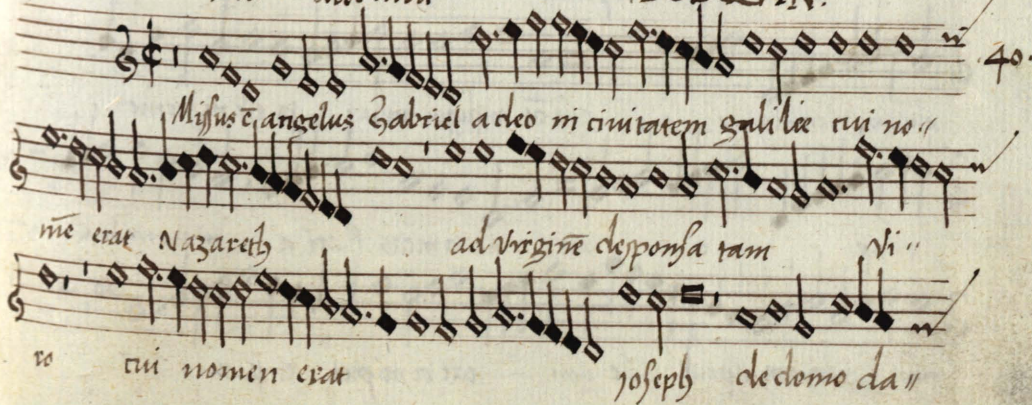 40
Missus ē angelus Gabriel a deo in ciuitatem galilee cui no"
mē erat Nazareth ad virginē desponsa tam vi"
ro cui nomen erat Joseph de domo da"